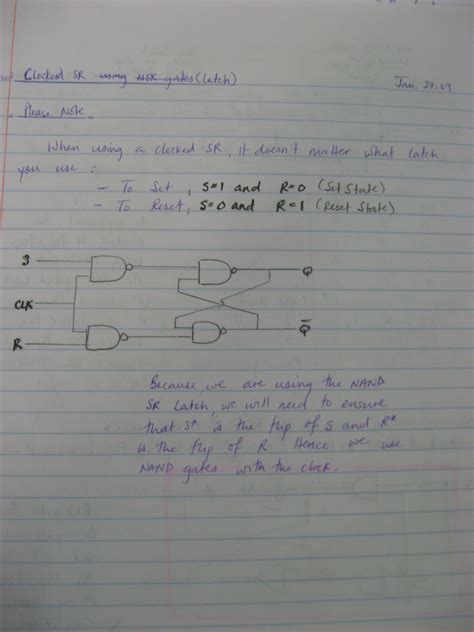 Clocked SR using NOR gates (Latch)
Jan. 27.09
Please Note
When using a clocked SR, it doesn't matter what latch
you use :
- To Set, S=1 and R=0 (Set State)
- To Reset, S=0 and R=1 (Reset State)
S
Q
CLK
R
Q̅
Because we are using the NAND
SR Latch, we will need to ensure
that S* is the flip of S and R*
is the flip of R Hence we use
NAND gates with the clock.